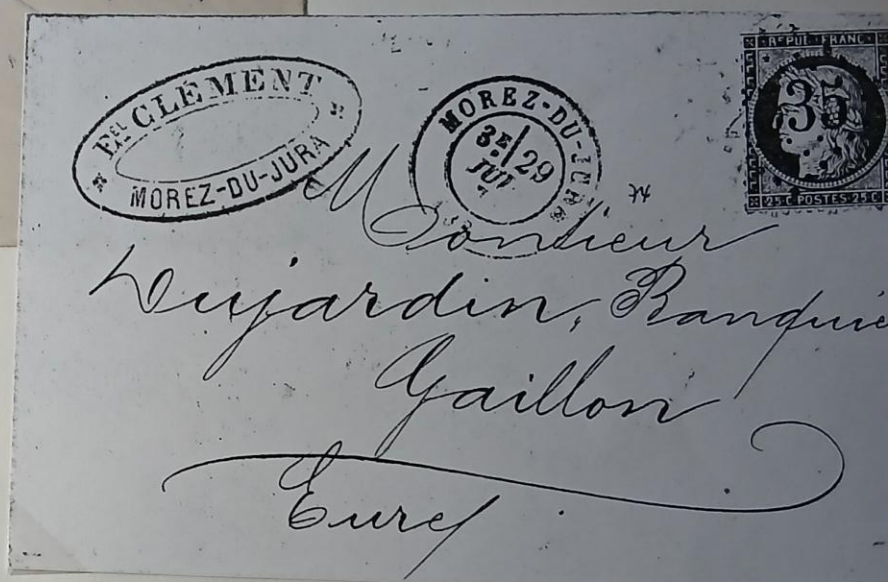 EEL CLÉMENT
MOREZ-DU-JURA
MOREZ-DU-JURA
3E 29
JUI
REPUB. FRANC.
35
25 C POSTES 25 C
Monsieur
Dujardin, Banquie
Gaillon
Eure